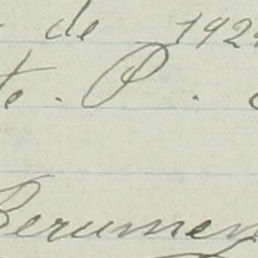 de 192
te. P.
Berumen